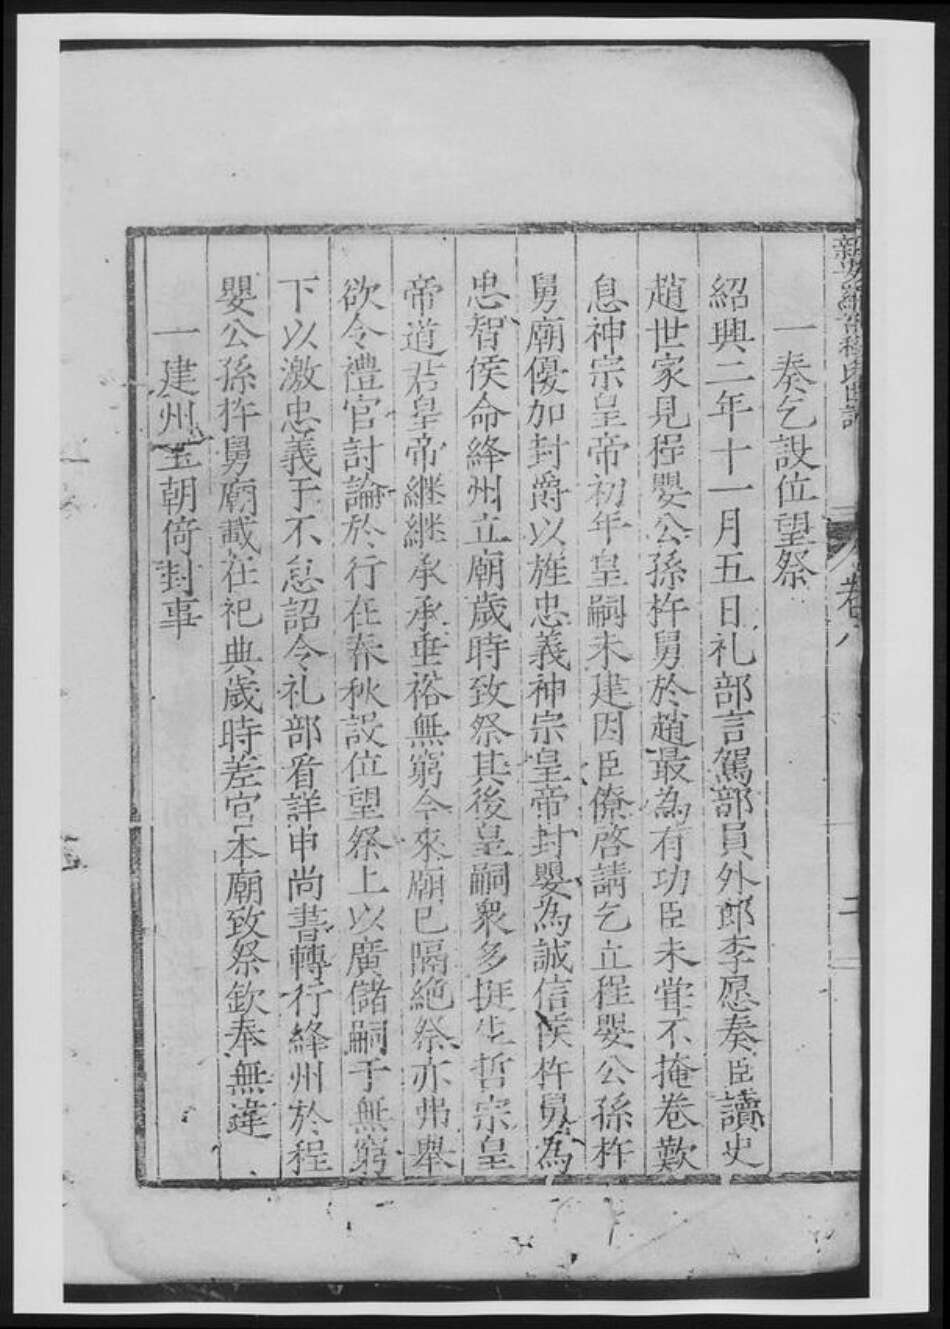 一奏乞設位望祭
紹興二年十一月五日礼部言駕部員外郎李愿奏臣讀史
趙世家見程嬰公孫杵舅於趙最為有功臣未嘗不掩卷歎
息神宗皇帝初年皇嗣未建因臣僚啓請乞立程嬰公孫杵
舅廟優加封爵以旌忠義神宗皇帝封嬰為誠信侯杵舅為
忠智侯命絳州立廟歲時致祭其後皇嗣衆多挺生哲宗皇
帝道君皇帝継継承承垂裕無窮今來廟已隔絶祭亦弗舉
欲令禮官討論於行在春秋設位望祭上以廣儲嗣于無窮
下以激忠義于不怠詔令礼部看詳申尚書轉行絳州於程
嬰公孫杵舅廟載在祀典歲時差官本廟致祭欽奉無違
一建州王朝倚封事
卷八
二